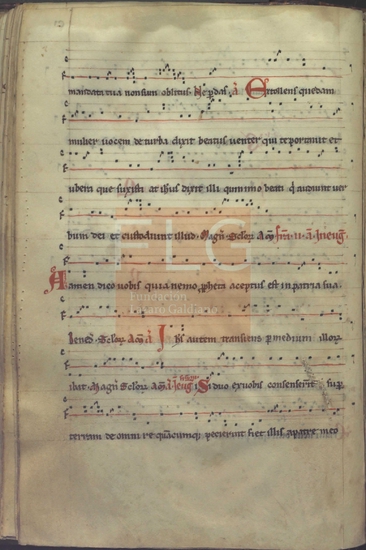 mandata tua non sum oblitus. Ne pdas. A Extollens quedam
mulier uocem de turba dixit beatus uenter qui te portauit et
ubera que suxisti at ihsus dixit illi quinimo beati q̄ audiunt uer
bum dei et custodiunt illud. Magn̄. Sclor̄. Am̄ fr̄ia. ii. ā. In eug̅.
Amen dico uobis quia nemo ꝓpheta aceptus est in patria sua.
Bened. Sclor̄. Am̄ A Ihs autem transiens p medium illor̄
ibat. Magn̄. Sclor̄. Am̄ In eug̅ Si duo ex uobis consenserīt sup̄
terram de omni re quācumq; pecierint fiet illis a patre meo
FLG
Fundación
Lázaro Galdiano